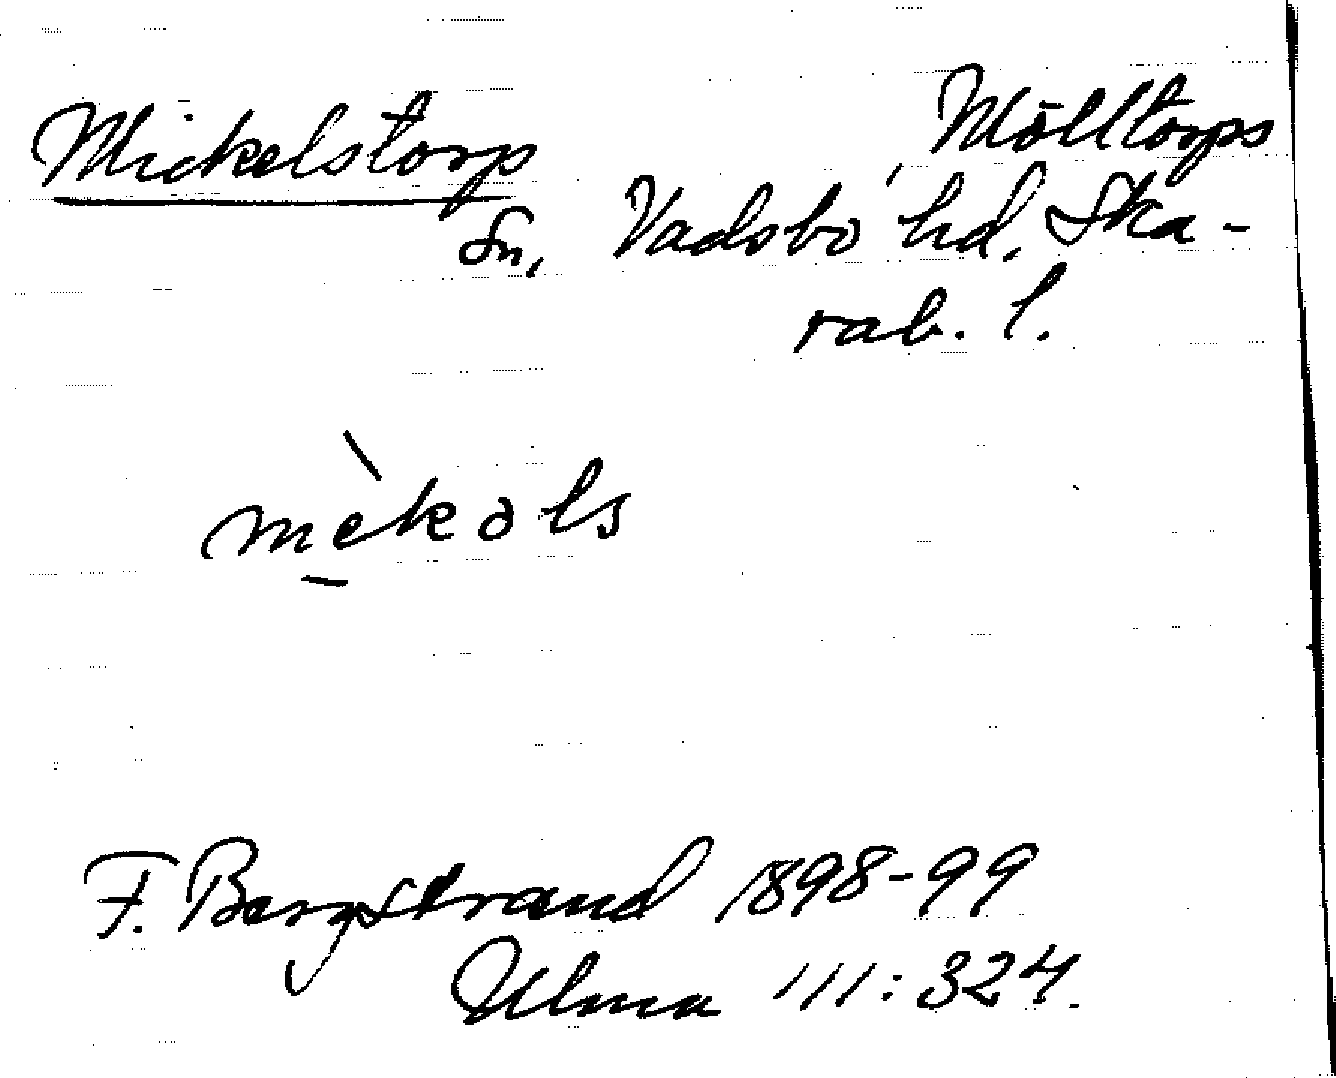 Mickelstorp Mölltorps
Sn, Vadsbo hd. Ska-
rab. l.
mèkəls
F. Bergstrand 1898-99
Ulma 111:324.